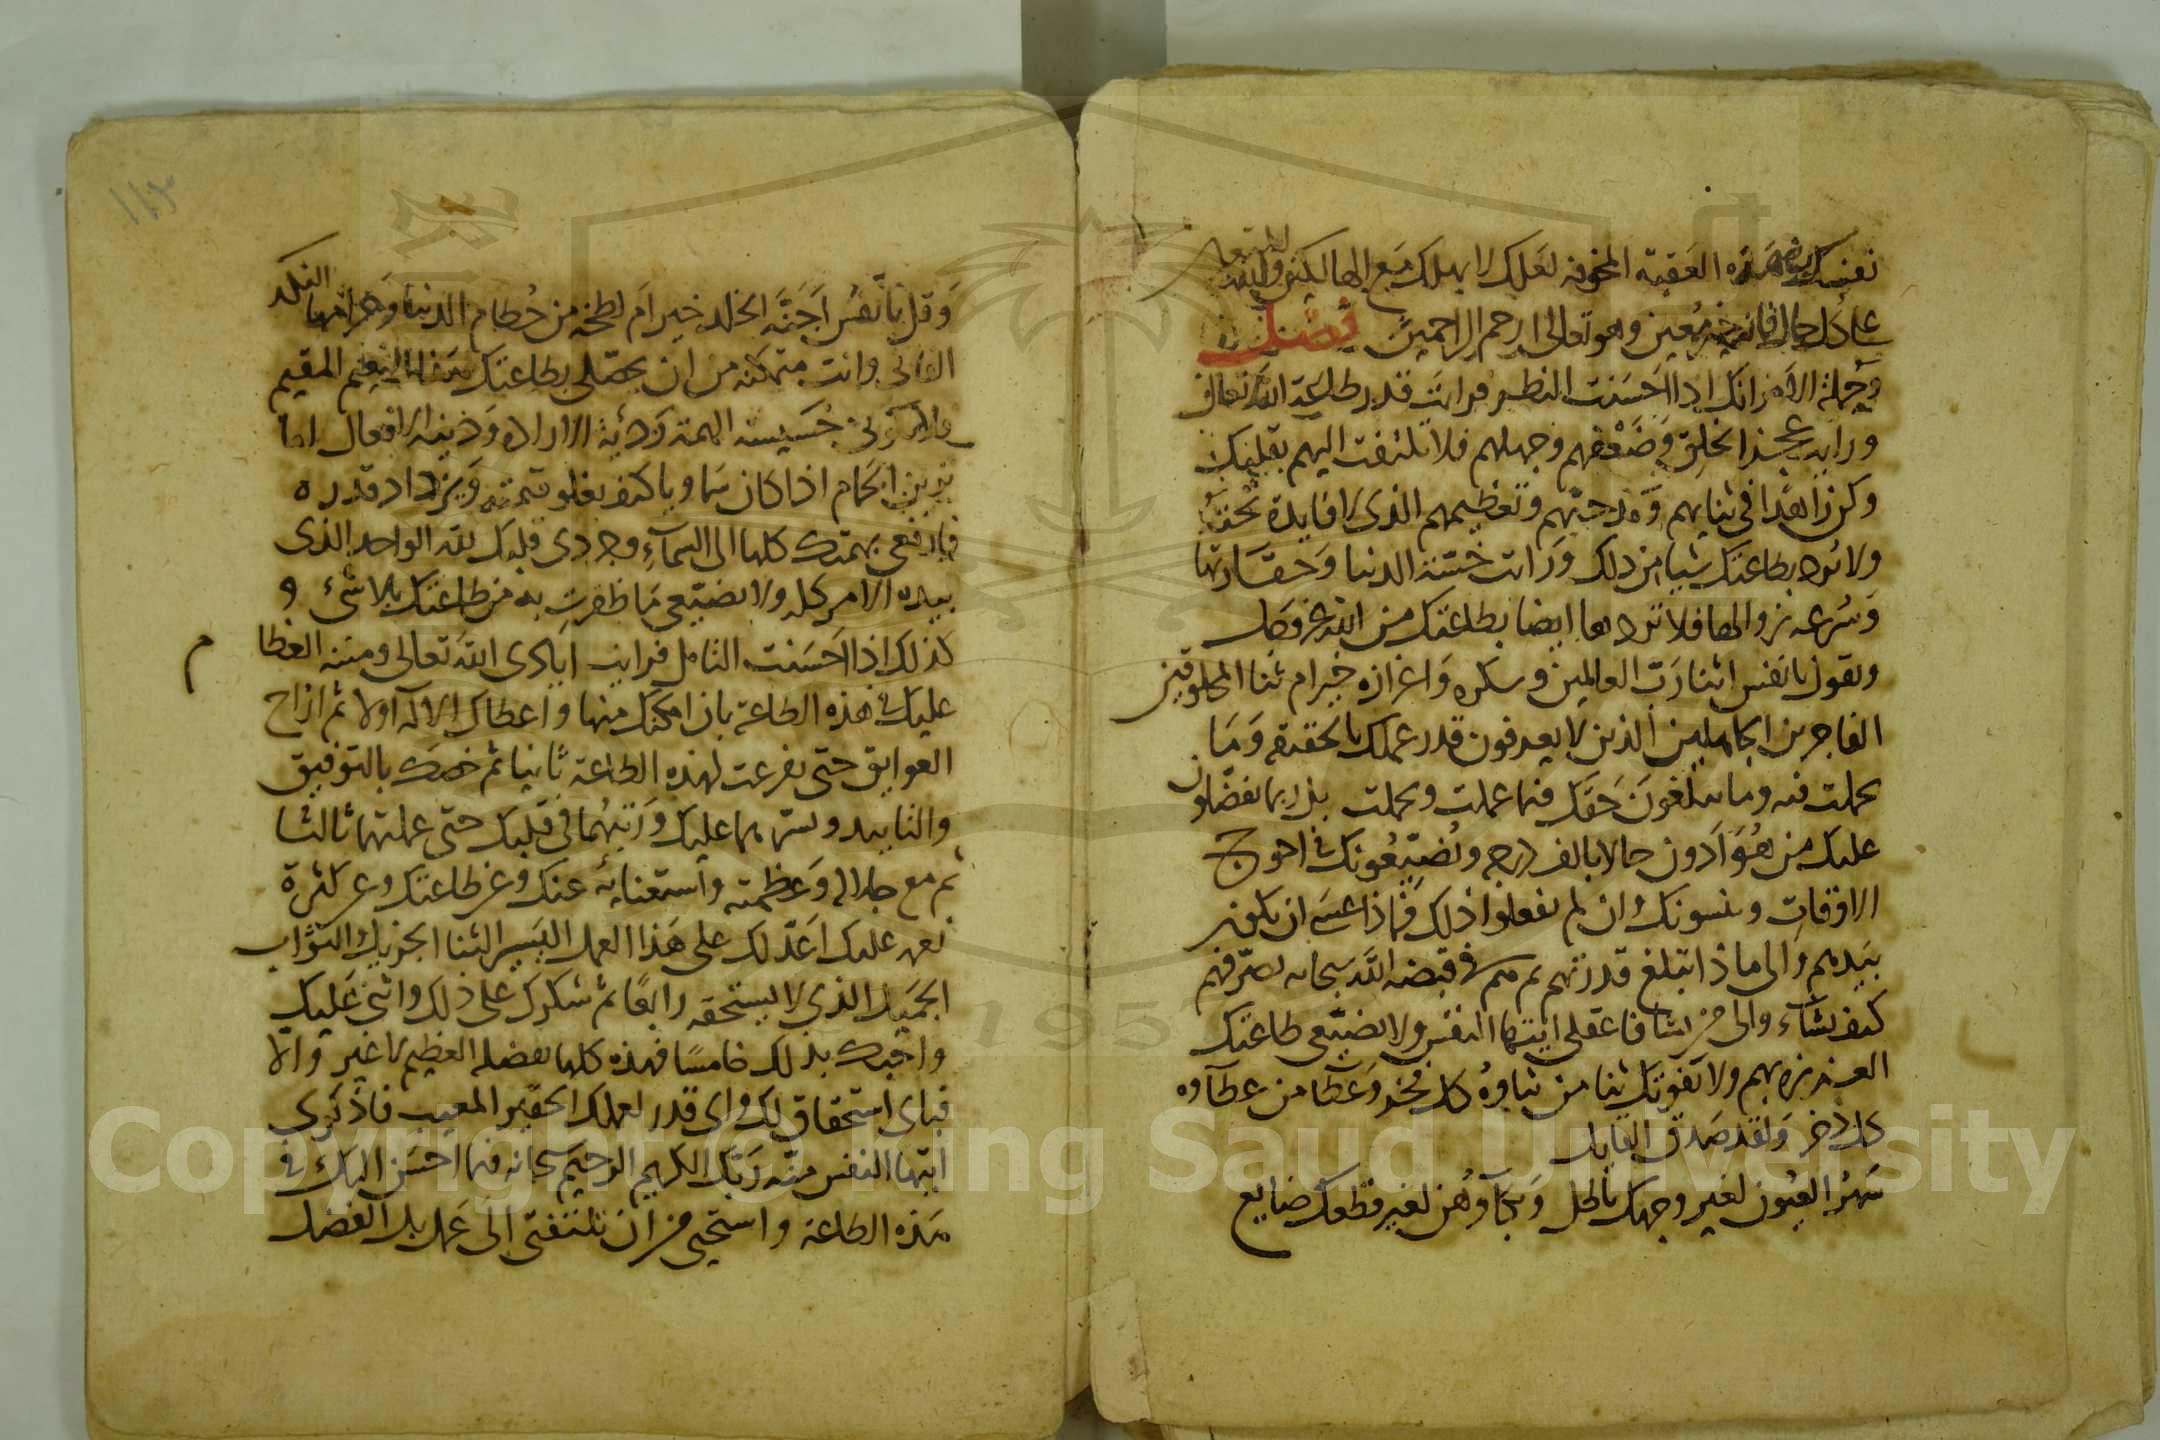 نفسك في هذه العقبة المخوفه لعلك لا تهلك مع الهالكين والله المستعان
على كل حال فانه خير معين وهو تعالى ارحم الراحمين فصل
وجملة الامر انك اذا احسنت النظر فرايت قدر طاعة الله تعالى
ورايت عجز الخلق وضعفهم وجهلهم فلا تلتفت اليهم بقلبك
وكن زاهدا في ثنايهم ومدحتهم وتعظيمهم الذى لا فايدة تحته
ولا ترد بطاعتك شيا من ذلك ورايت خسة الدنيا وحقارتها
وسرعة زوالها فلا تردها ايضا بطاعتك من الله عز وجل
وتقول يا نفس اثنا رب العالمين وشكره واعزازه خير ام ثنا المخلوقين
الفاجرين الجاهلين الذين لا يعرفون قدر عملك بالحقيقه وما
تحملت فيه وما يبلغون حقك فيما عملت وتحملت بل ربما يفضلون
عليك من هو ادون حالا بالف درجه ويضيعونك في احوج
الاوقات وينسونك وان لم يفعلوا ذلك فماذا عسى ان يكون
بيدهم والى ماذا تبلغ قدرتهم ثم هم في قبضة الله سبحانه يصرفهم
كيف يشاء والى من يشا فاعقلى ايتها النفس ولا تضيعى طاعتك
العزيزه بهم ولا تفوتك ثنا من ثناوه كل فخر وعطا من عطاوه
كل ذخر ولقد صدق القايل
سهر العيون لغير وجهك باطل وبكاوهن لغير فقدك ضايع
١١٣
وقل يا نفس اجنة الخلد خير ام لطخه من حطام الدنيا وحرامها النكد
الفانى وانت متمكنه من ان تحصلى بطاعتك هذا النعيم المقيم
فلا تكونى خسيسة الهمة ردئة الارادة ودنية الافعال اما
ترين الحمام اذا كان سماويا كيف يغلو قيمته ويزداد قدره
فارفعى بهمتك كلها الى السماء وجردى قلبك لله الواحد الذى
بيده الامر كله ولا تضيعى ما ظفرت به من طاعتك بلا شئ و
كذلك اذا احسنت التامل فرايت ايادى الله تعالى ومننه العظام
عليك في هذه الطاعة بان امكنك منها واعطاك الالة اولا ثم ازاح
العوايق حتى تفرغت لهذه الطاعة ثانيا ثم خصك بالتوفيق
والتاييد ويسرها عليك وزينها في قلبك حتى عملتها ثالثا
ثم مع جلاله وعظمته واستغنائه عنك وعن طاعتك وعن كثرة
نعمه عليك اعد لك على هذا العمل اليسير الثنا الجزيل والثواب
الجميل الذى لا يستحقه رابعا ثم شكرك على ذلك واثنى عليك
واحبك بذلك خامسا فهذه كلها بفضله العظيم لا غير والا
فباى استحقاق لك واى قدر لعملك الحقير المعيب فاذكرى
ايتها النفس منة ربك الكريم الرحيم سبحانه فيما احسن اليك في
هذه الطاعة واستحيى من ان تلتفتى الى عمل بل الفضل
Copyright © King Saud University
195